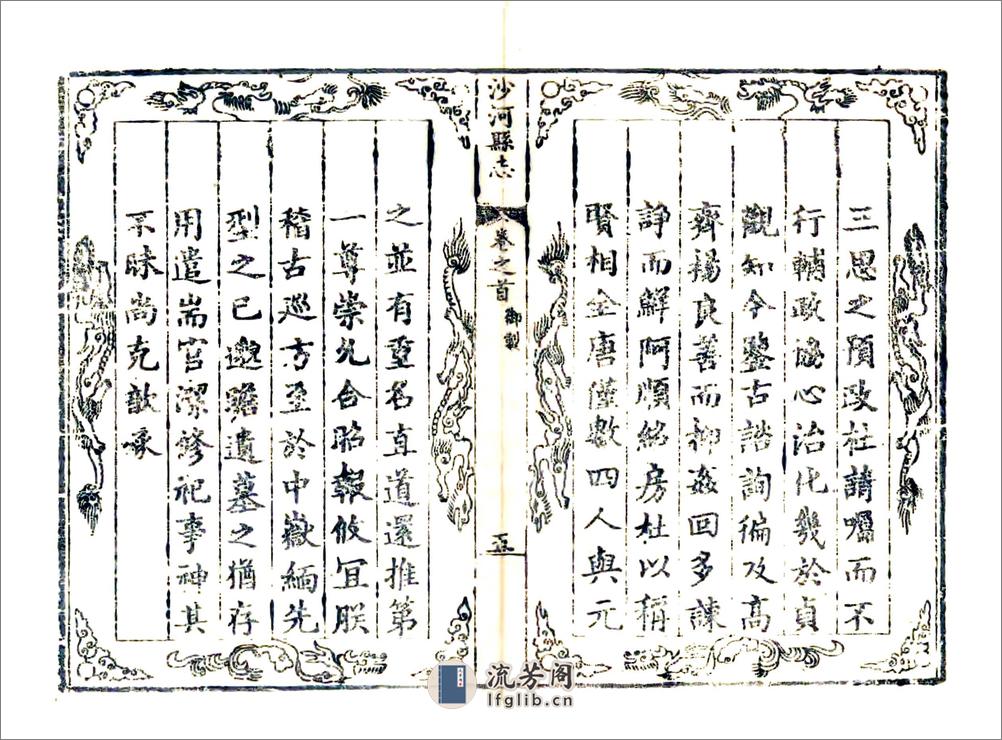 三思之預政杜請囑而不
行輔政協心治化幾於貞
觀知今鑒古諮詢徧及高
齊揚良善而抑姦回多諫
諍而鮮阿順緜房杜以稱
賢相全唐僅數四人與元
沙河縣志
卷之首
御製
五
之並有重名直道還推第
一尊崇允合昭報攸宜朕
稽古巡方至於中嶽緬先
型之已邈瞻遺墓之猶存
用遣耑官潔修祀事神其
不昧尚克歆
流芳阁
lfglib.cn